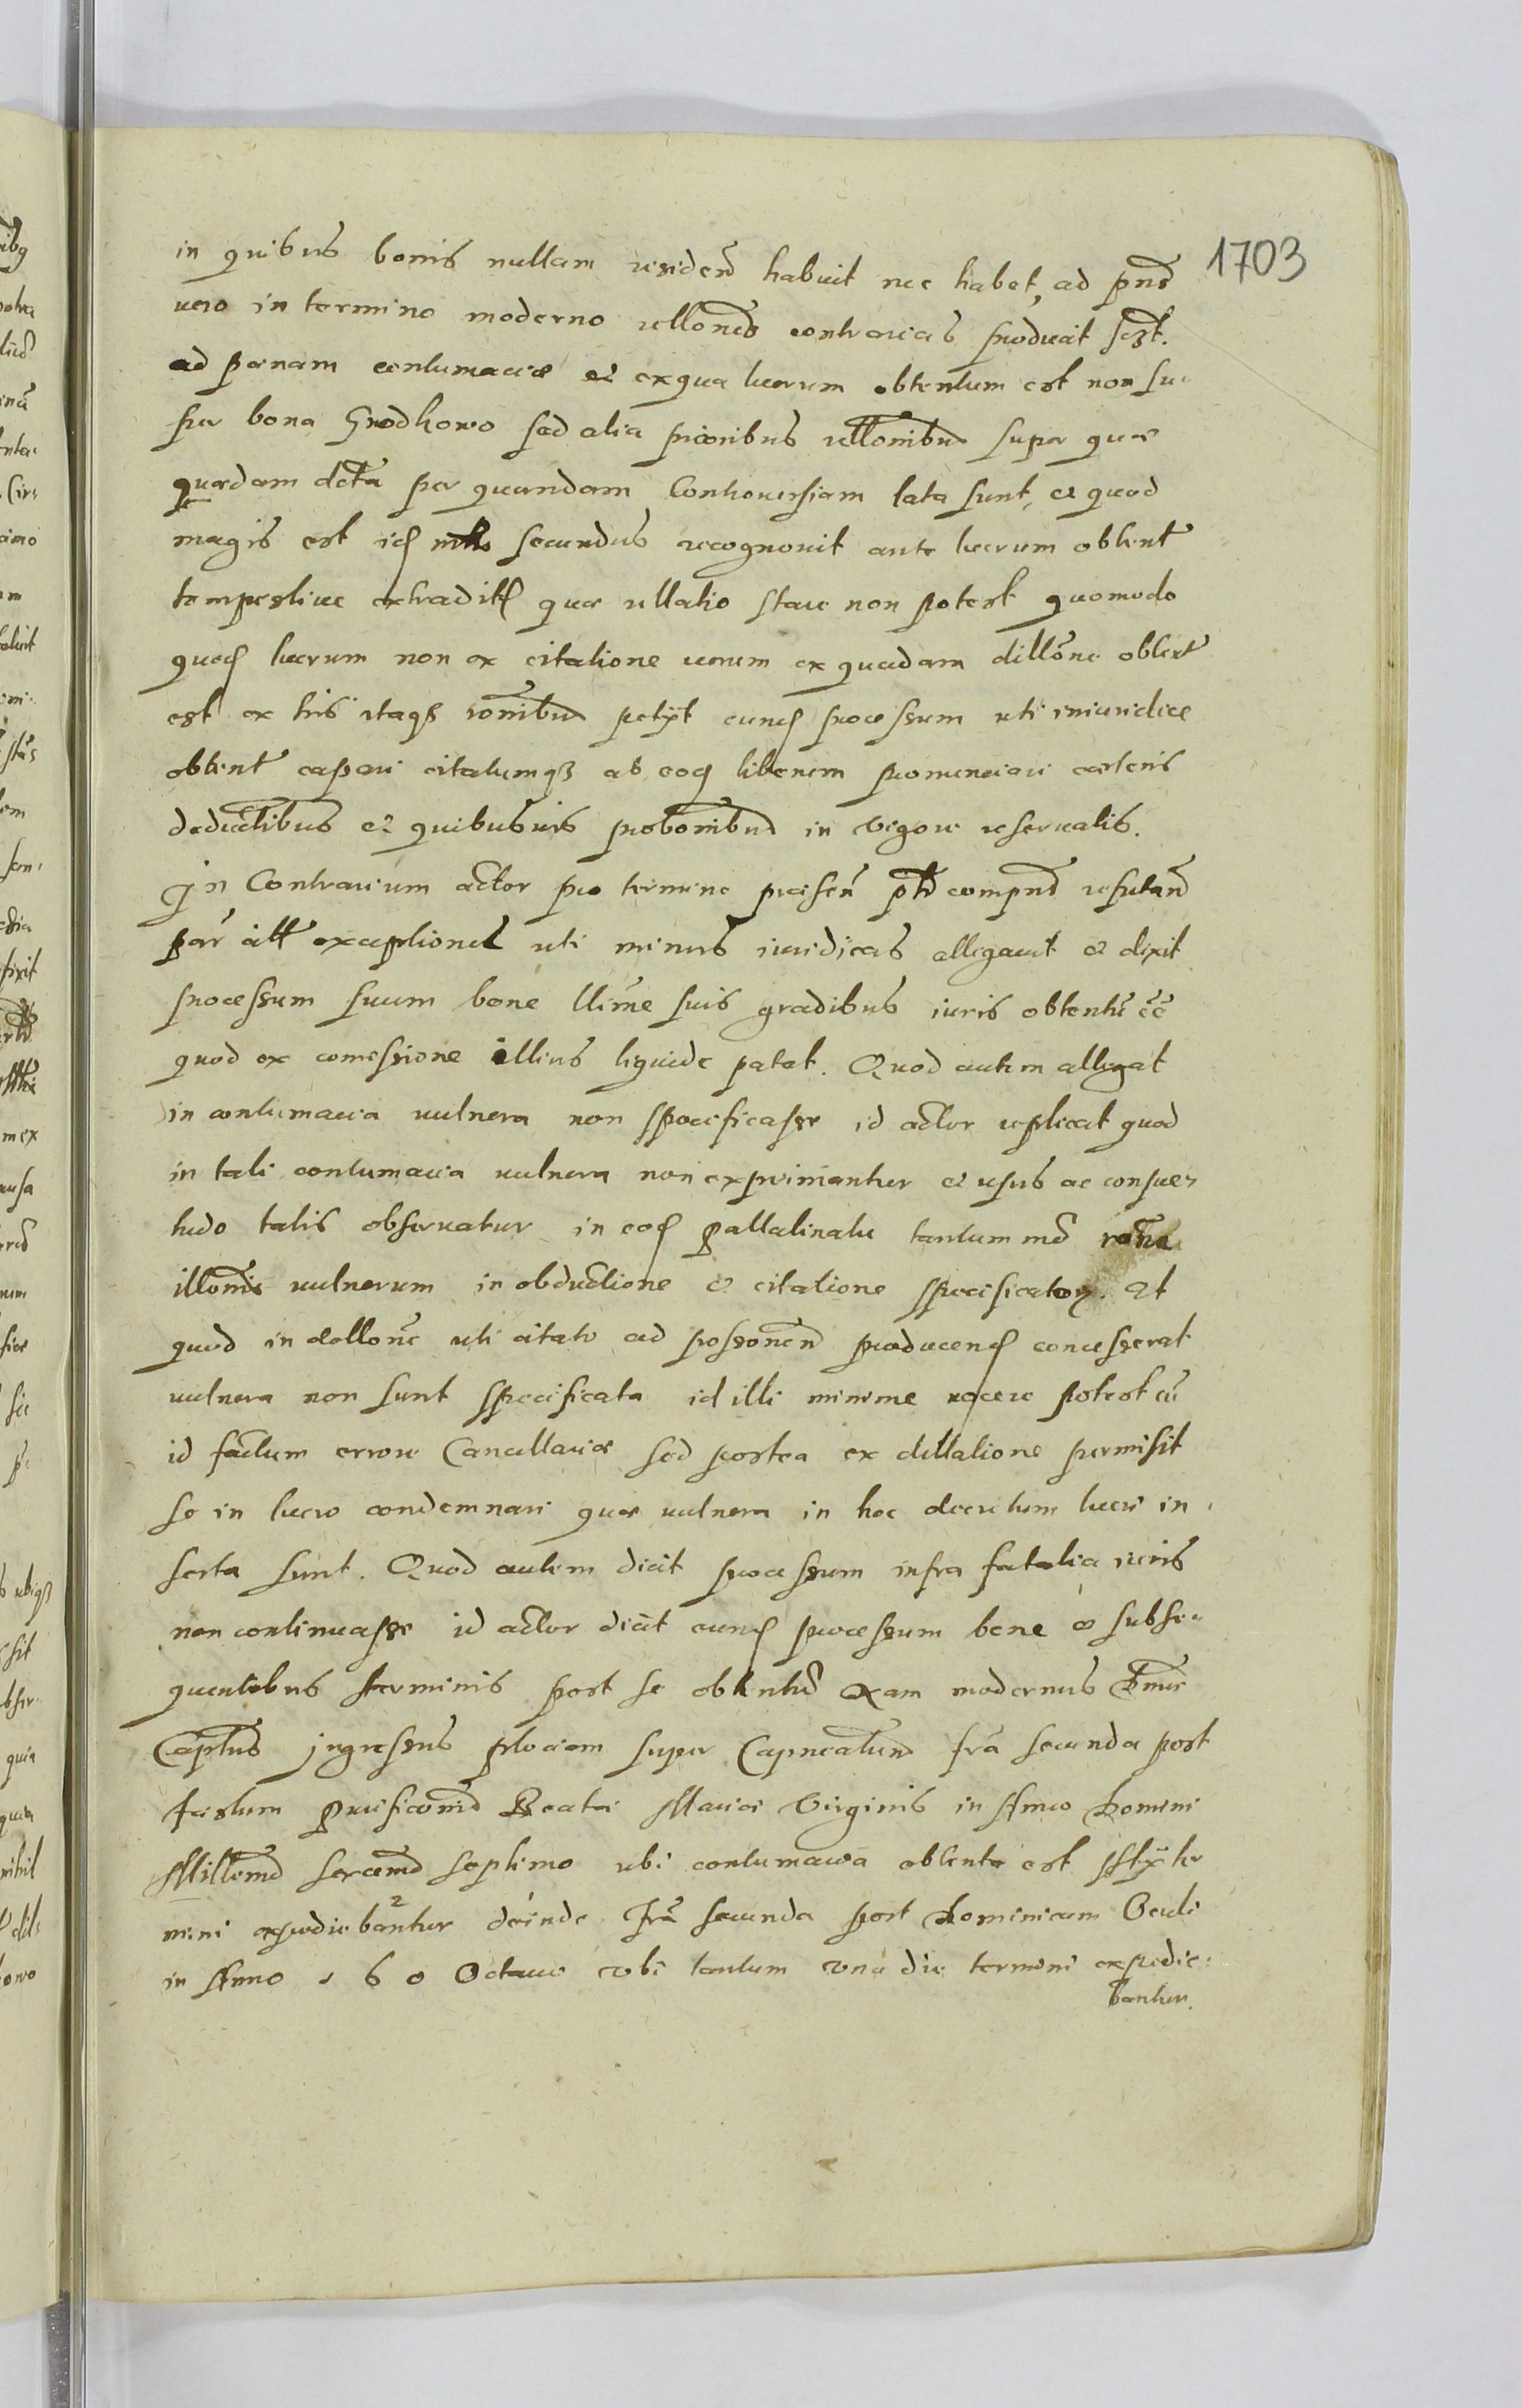 1703
in quibus bonis nullam residen̄ habuit nec habet, ad pn̄s
vero in termino moderno rellōnes contrarias producit
ad pœnam contumaciæ et ex qua lucrum obtentum est non su-
per bona Grodkowo sed alia prioribus rellōnibus super quæ
quædam dcta per quandam Controuersiam lata sunt, et quod
magis est secundus recognouit ante lucrum obtent
tempestiue quæ rellatio stare non potest quomodo
lucrum non ex citatione uerum ex quadam dillōne obtent
est ex his itaq; rōnibus petijt processum uti iniuridice
obtent cassari citatumq; ab liberum pronunciari cæteris
deductibus et quibusuis probōnibus in vigore reseruatis.
In Contrarium actor pro termino præsen̄ compn̄s refutan̄
par alt exceptiones uti minus iuridicas allegauit et dixit
processum suum bene lltime suis gradibus iuris obtentū ēē
quod ex comissione illius liquide patet. Quod autem allegat
in contumacia uulnera non specificasse id actor replicat quod
in tali contumacia uulnera non exprimantur et usus ac consue-
tudo talis obseruatur in Pallatinatu tantum md rōne
illōnis uulnerum in obductione et citatione specificator. Et
quod in dellōne uti citato ad producen concesserat
uulnera non sunt specificata id illi minime nocere potest cū
id factum errore Cancellariæ sed postea ex dillatione permisit
se in lucro condemnari quæ uulnera in hoc decretum lucri in-
serta sunt. Quod autem dicit processum infra fatalia iuris
non continuasse id actor dicit processum bene et subse-
quentibus terminis post se obtentu Nam modernus
Captus ingressus Plociam super Capneatum fra secunda post
festum Purificōnis Beatæ Mariæ Virginis in Anno Domini
Millemo sexcemo septimo ubi contumacia obtenta est ter-
mini expediebantur deinde fra secunda post Dominicam Oculi
in Anno 160 Octauo vbi tantum vna die termini expedie-
bantur.